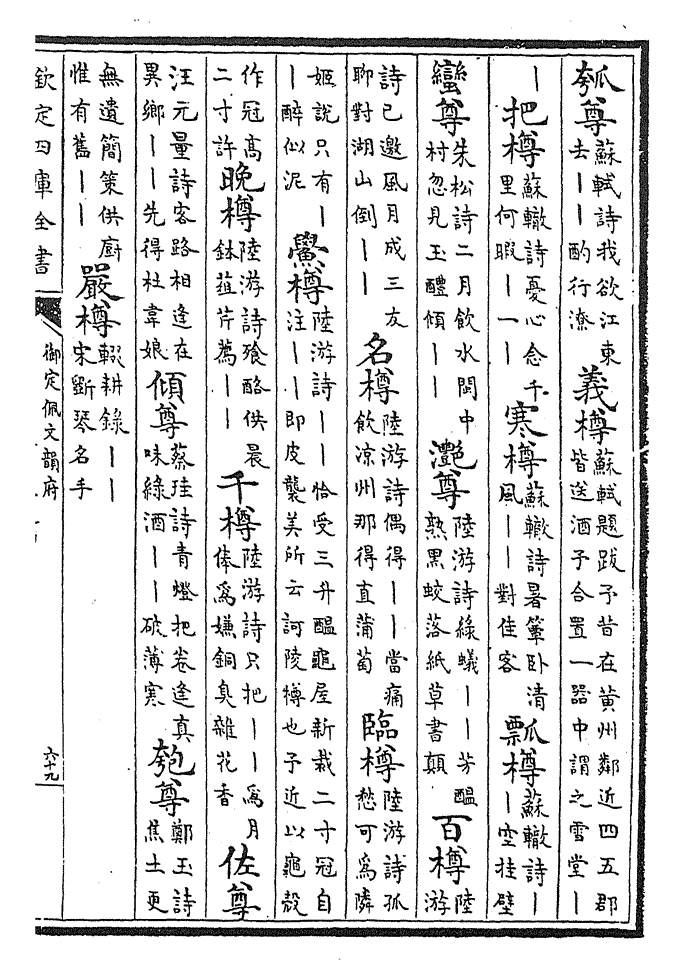 瓠尊蘇軾詩我欲江東去｜｜酌行潦義樽蘇軾題跋予昔在黃州鄰近四五郡皆送酒予合置一器中謂之雪堂｜
｜把樽蘇轍詩憂心念千里何暇｜一｜寒樽蘇轍詩暑簟卧清風｜｜對佳客瓢樽蘇轍詩｜｜空挂壁
蠻尊朱松詩二月飲水閩中村忽見玉醴傾｜｜灔尊陸游詩綠蟻｜｜芳醖熟黑蛟落紙草書顛百樽陸游
詩已邀風月成三友聊對湖山倒｜｜名樽陸游詩偶得｜｜當痛飲凉州那得直蒲萄臨樽陸游詩孤愁可爲隣
姬說只有｜｜醉似泥鱟樽陸游詩｜｜恰受三升醖龜屋新裁二寸冠自注｜｜即皮襲美所云訶陵樽也予近以龜殼
作冠高二寸許晚樽陸游詩飱酪供晨鉢葅芹薦｜｜千樽陸游詩只把｜｜爲月俸爲嫌銅臭雜花香佐尊
汪元量詩客路相逢在異鄉｜｜先得杜韋娘傾尊蔡珪詩青燈把卷逢真味綠酒｜｜破薄寒匏尊鄭玉詩焦土更
無遺簡策供厨惟有舊｜｜嚴樽輟耕錄｜｜宋斵琴名手
欽定四庫全書
御定佩文韻府
六十九